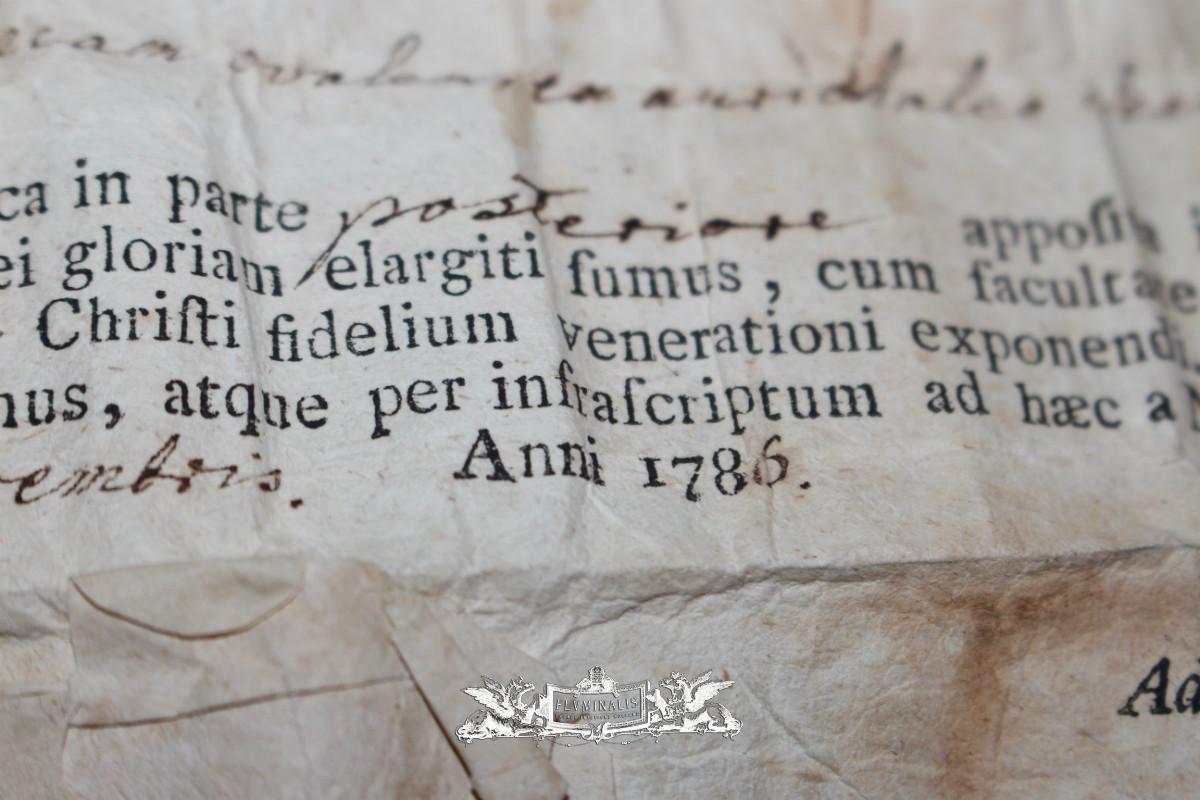 ca in parte posteriore appoſit
ei gloriam elargiti ſumus, cum facultate
Chriſti fidelium venerationi exponendi
nus, atque per infraſcriptum ad hæc a
embris. Anni 1786.
Ad
FLVMINALIS